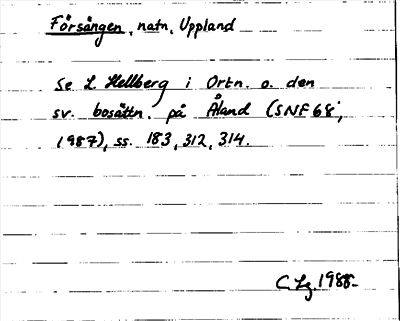 Försången, natn. Uppland
Se L Hellberg i Ortn. o. den
sv. bosättn. på Åland (SNF 68,
1987), ss. 183, 312, 314.
C. Lg. 1988.